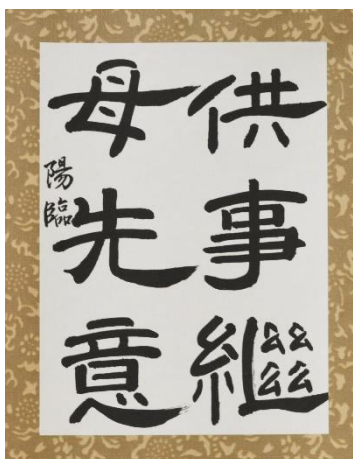 供事繼
母先意
陽臨